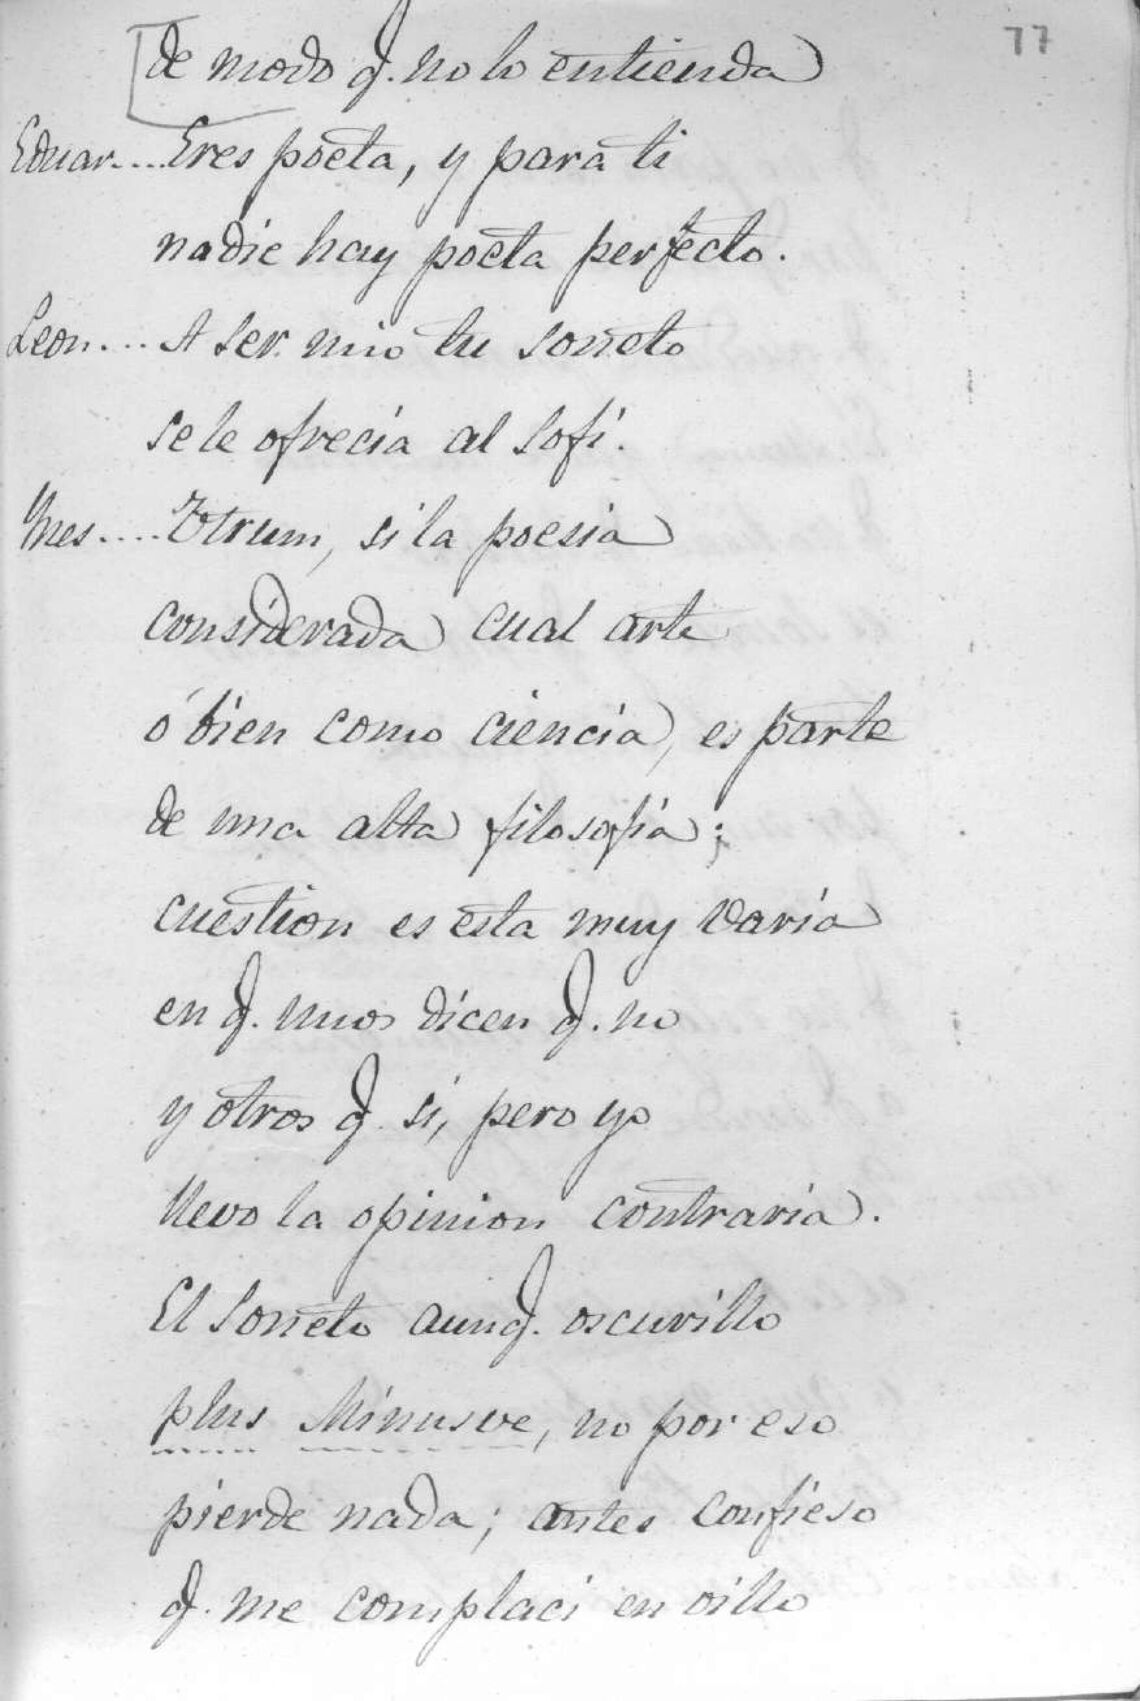 77
de modo q. no lo entienda
Eduar.... Eres poeta, y para ti
nadie hay poeta perfecto.
Leon.... A ser mio tu soneto
se le ofrecia al Sofi.
Ynes.... Utrum, si la poesia
considerada cual arte
ó bien como ciencia, es parte
de una alta filosofia;
cuestion es esta muy varia
en q. unos dicen q. no
y otros q. si, pero yo
llevo la opinion contraria.
El Soneto aunq. oscurillo
plus Minusve, no por eso
pierde nada; antes confieso
q. me complaci en oillo